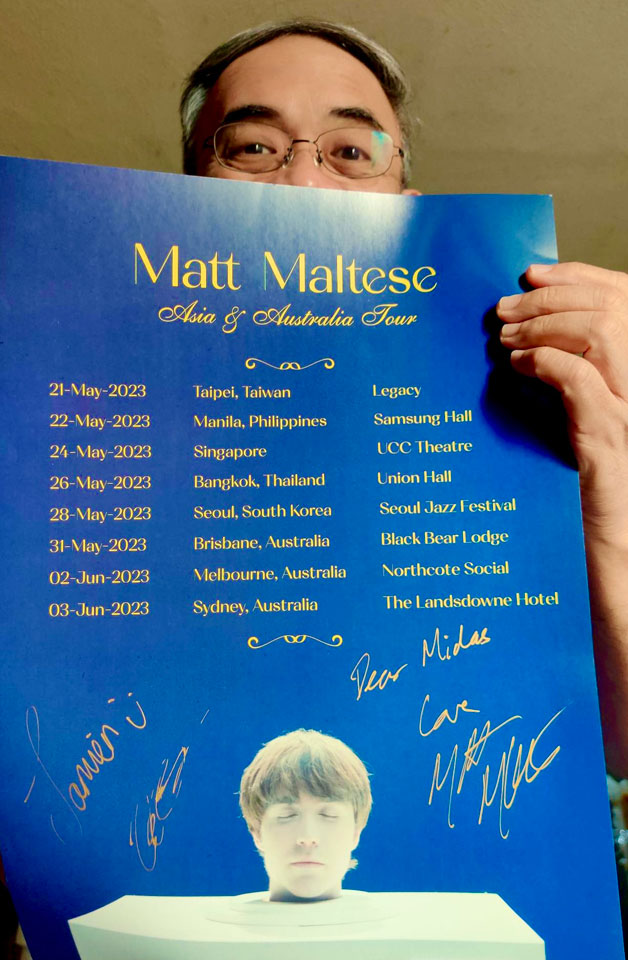 Matt Maltese
Asia & Australia Tour
21-May-2023 Taipei, Taiwan Legacy
22-May-2023 Manila, Philippines Samsung Hall
24-May-2023 Singapore UCC Theatre
26-May-2023 Bangkok, Thailand Union Hall
28-May-2023 Seoul, South Korea Seoul Jazz Festival
31-May-2023 Brisbane, Australia Black Bear Lodge
02-Jun-2023 Melbourne, Australia Northcote Social
03-Jun-2023 Sydney, Australia The Landsdowne Hotel
Dear Midas
Love